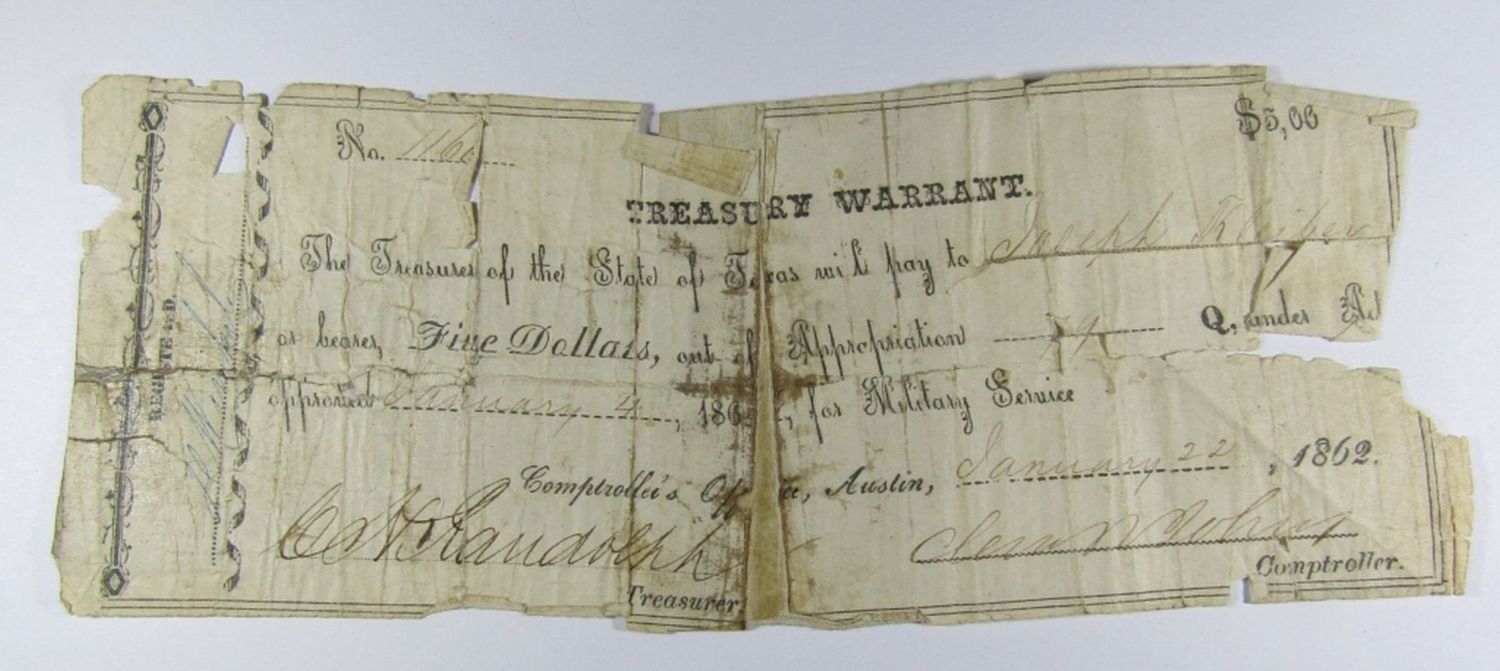 No. 1160
$5,00
TREASURY WARRANT.
The Treasurer of the State of Texas will pay to Joseph Kleiber
or bearer, Five Dollars, out of Appropriation 79 Q, under Act
approved January 4, 186, for Military Service
Comptroller's Office, Austin, January 22, 1862.
C H Randolph
Treasurer.
Clem R Johns
Comptroller.
REGISTERED